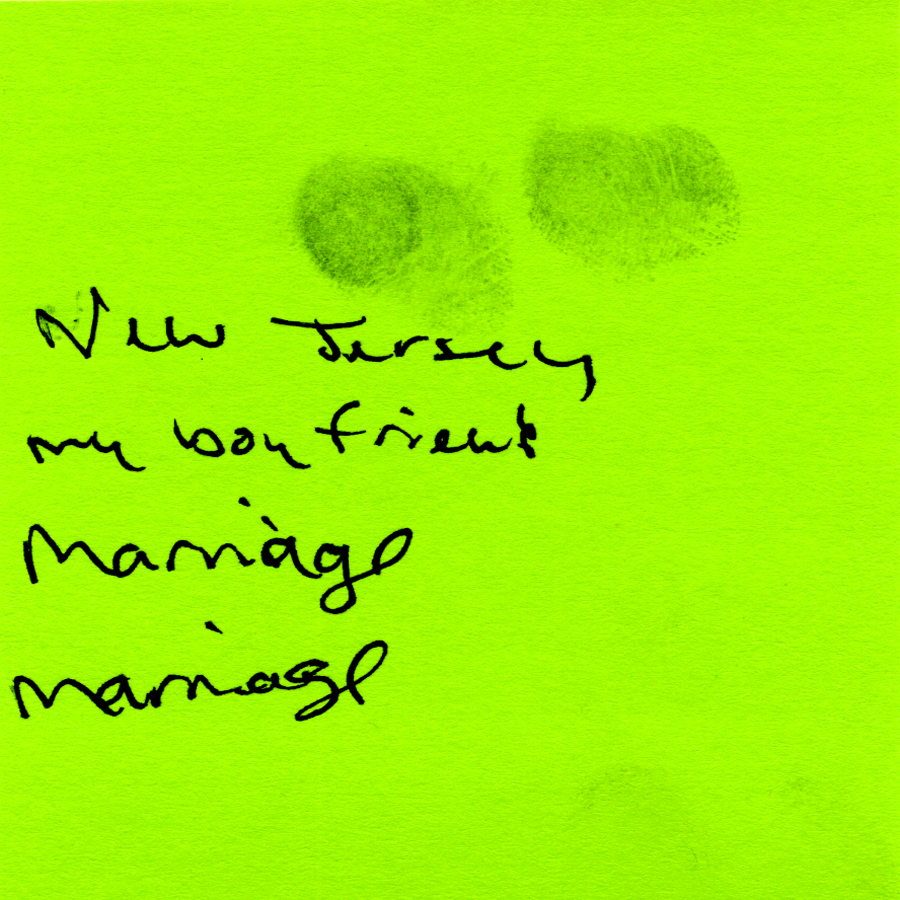 New Jersey
my boyfriend
Marriage
marriage